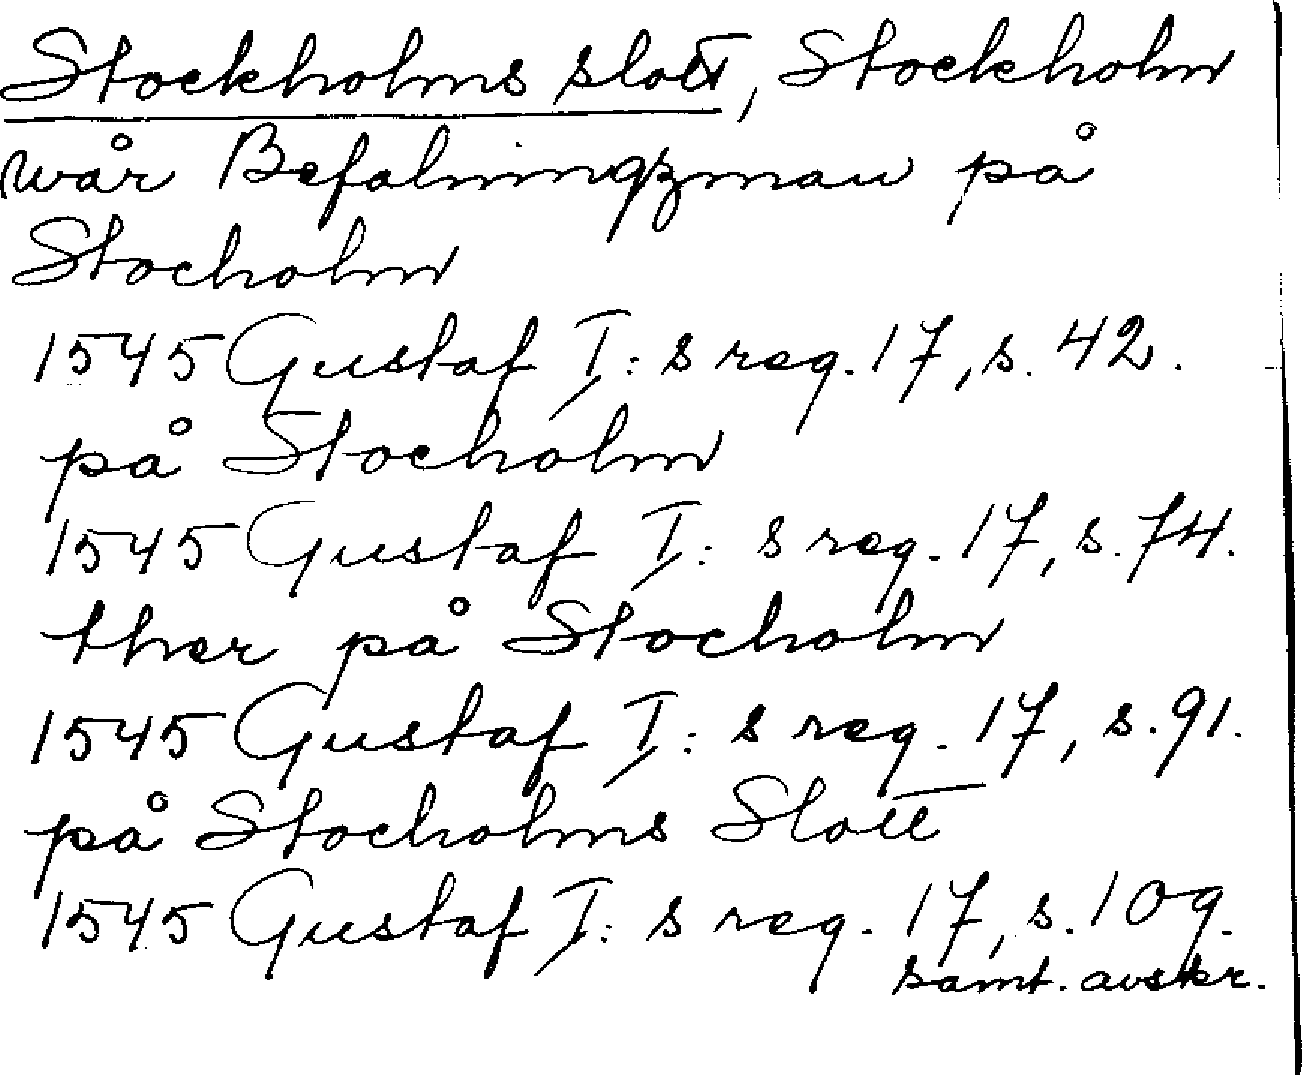 Stockholms slott, Stockholm
wår Befalningzman på
Stocholm
1545 Gustaf I:s reg. 17, s. 42.
på Stocholm
1545 Gustaf I:s reg. 17, s. 74.
ther på Stocholm
1545 Gustaf I:s reg. 17, s. 91.
på Stocholms Slott
1545 Gustaf I:s reg. 17, s. 109.
samt. avskr.